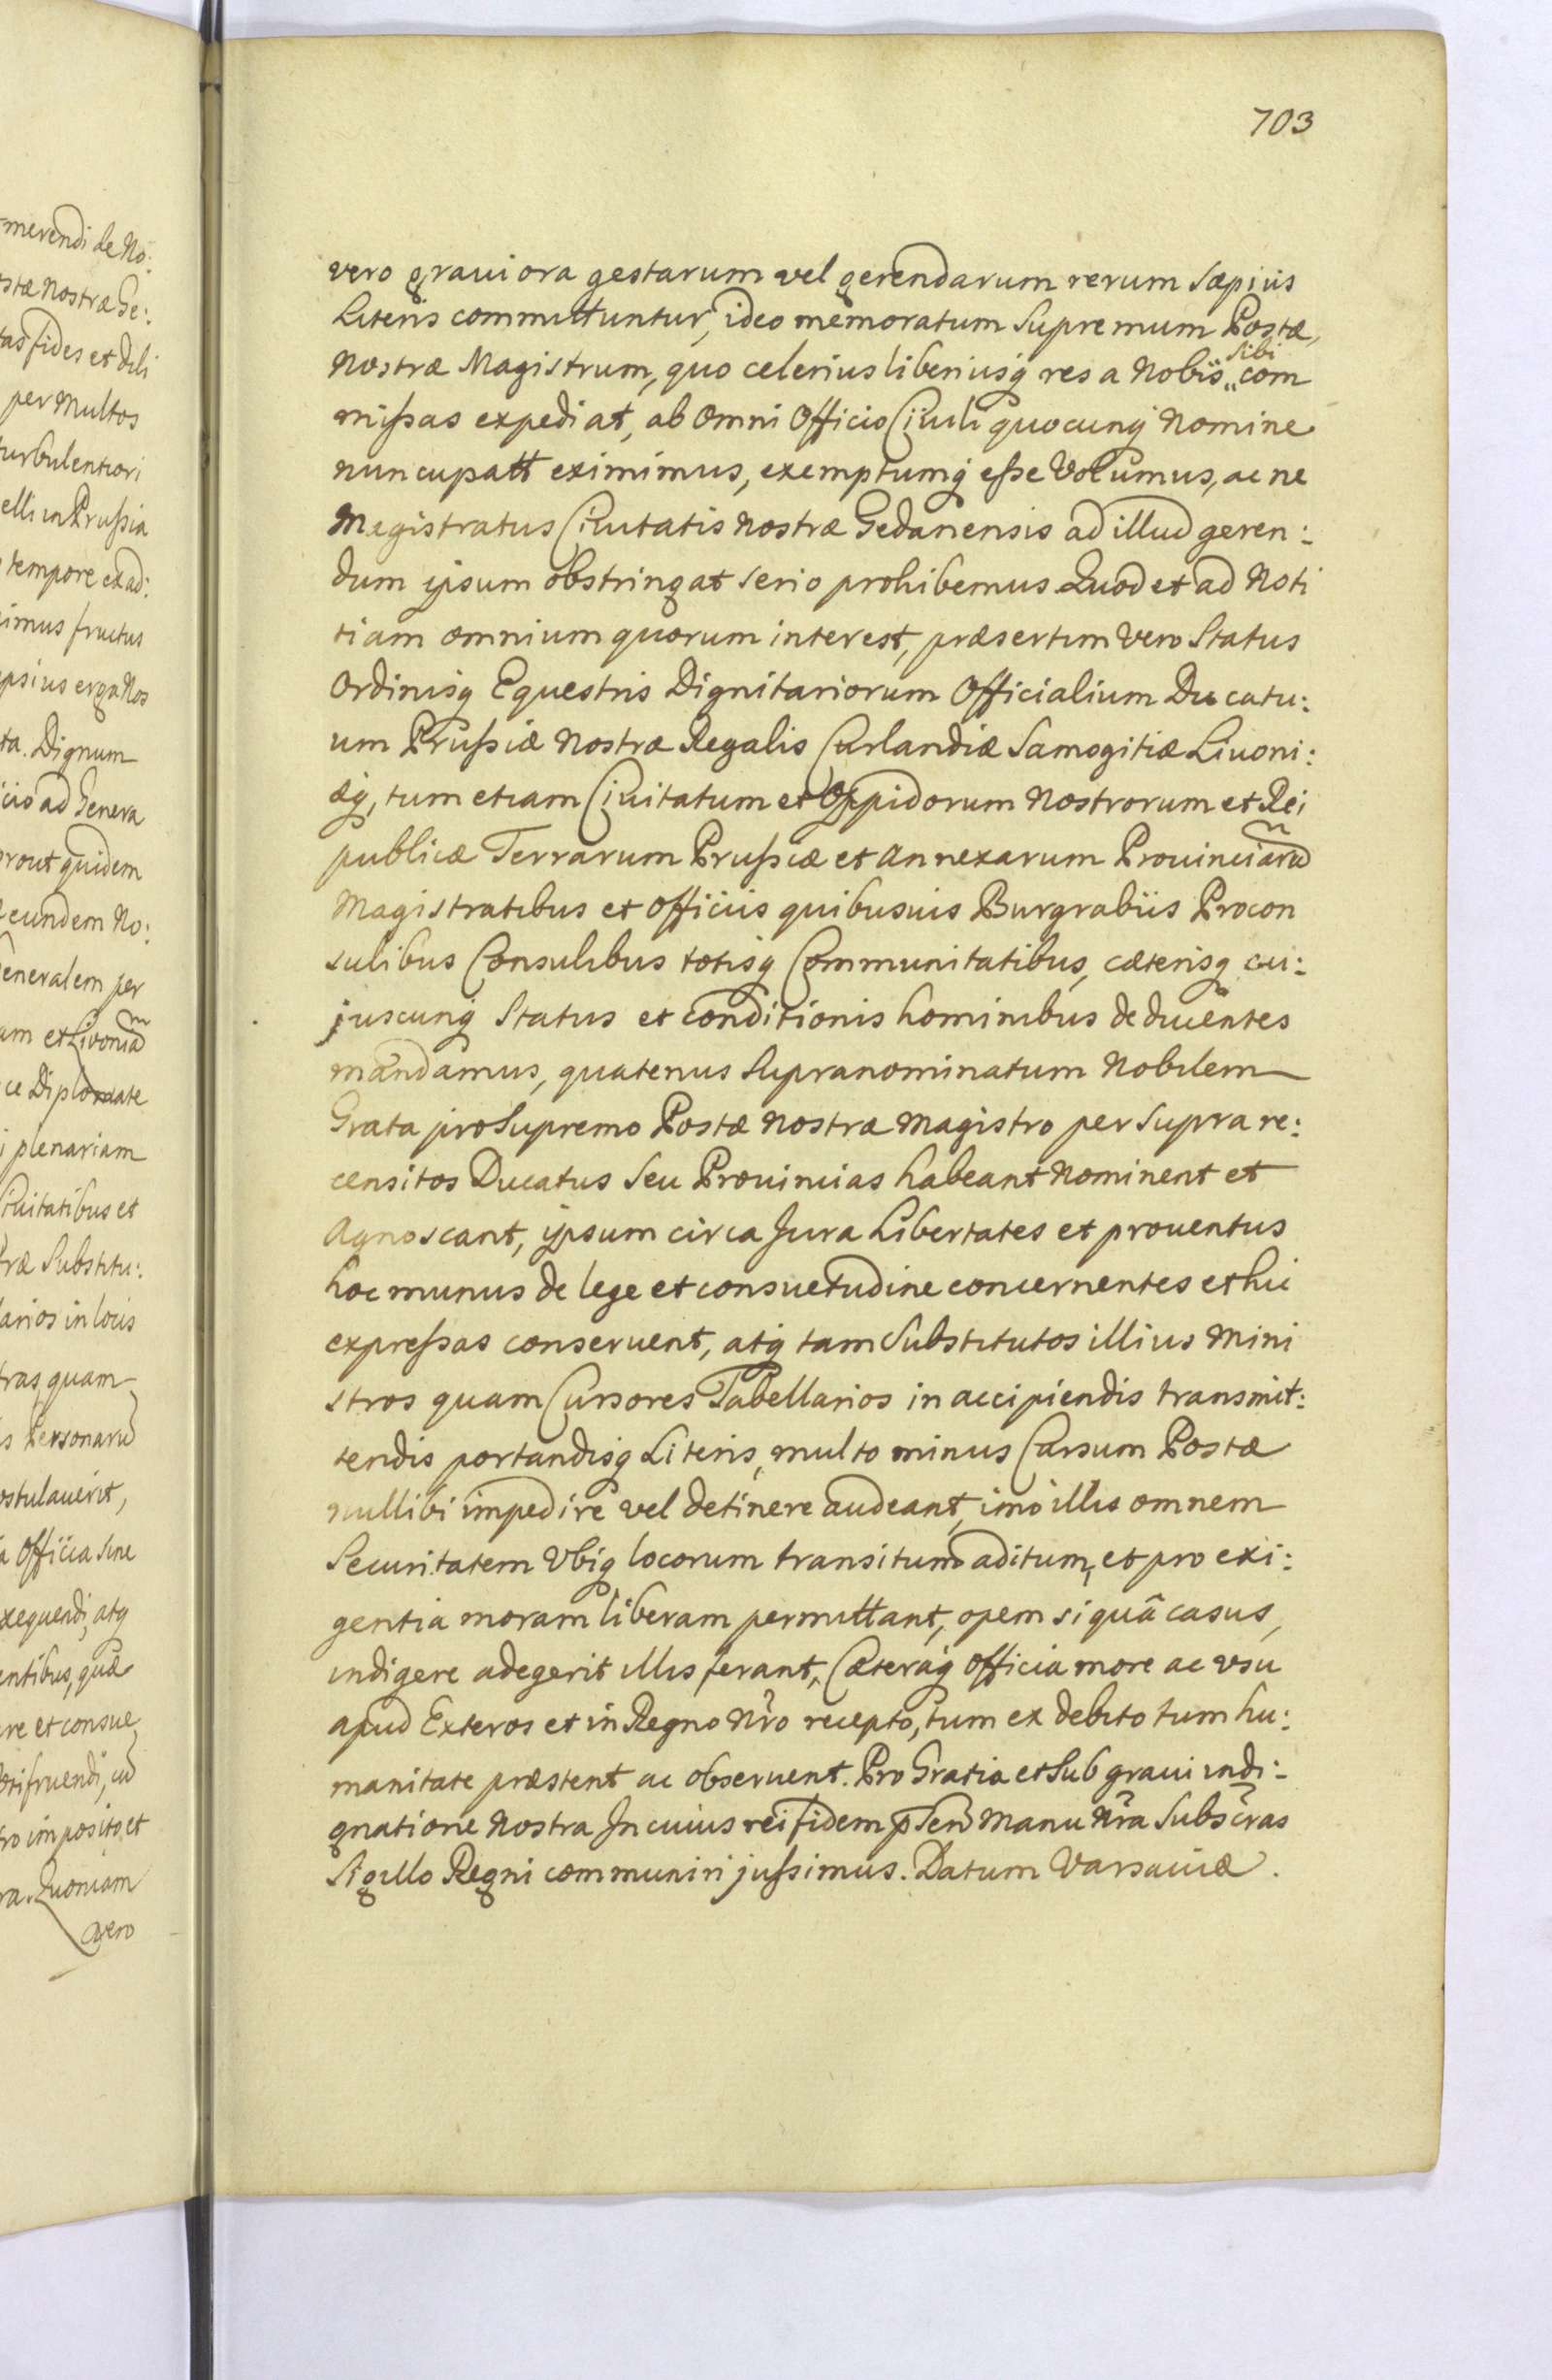 703
vero graviora gestarum vel gerendarum rerum sæpius
Literis committuntur, ideo memoratum Supremum Postæ
Nostræ Magistrum, quo celerius liberiusq̧ res a Nobis „ sibi com
missas expediat, ab Omni Officio Ciuili quocunq̧ Nomine
nuncupatt eximimus, exemptumq̧ esse Volumus, ac ne
Magistratus Ciuitatis Nostræ Gedanensis ad illud geren:
dum ipsum obstringat serio prohibemus Quod et ad Noti
tiam omnium quorum interest, præsertim vero Status
Ordinisq̧ Equestris Dignitariorum Officialium Ducatu:
um Prussiæ Nostræ Regalis Curlandiæ Samogitiæ Liuoni:
æq̧, tum etiam Ciuitatum et Oppidorum Nostrorum et Rei
publicæ Terrarum Prussiæ et Annexarum Prouinciarũ
Magistratibus et Officiis quibusuis Burgrabiis Procon
sulibus Consulibus totisq̧ Communitatibus, cæterisq̧ cu:
juscunq̧ Status et conditionis hominibus deducentes
mandamus, quatenus Supranominatum Nobilem
Grata pro Supremo Postæ Nostræ Magistro per Supra re:
censitos Ducatus Seu Prouincias habeant Nominent et
Agnoscant, ipsum circa Jura Libertates et prouentus
hoc munus de lege et consuetudine concernentes et hic
expressas conseruent, atq̧ tam Substitutos illius Mini
stros quam Cursores Tabellarios in accipiendis transmit:
tendis portandisq̧ Literis, multo minus Cursum Postæ
nullibi impedire vel detinere audeant, imo illis omnem
Securitatem Vbiq̧ locorum transitum aditum, et pro exi:
gentia moram liberam permittant, opem si quâ casus,
indigere adegerit illis ferant, Cæteraq̧ Officia more ac vsu
apud Exteros et in Regno Nr̃o recepto, tum ex debito tum hu:
manitate præstent ac obseruent. Pro Gratia et Sub graui indi:
gnatione Nostra In cuius rei fidem p̃sen Manu Nr̃a Subscr̃as
Sigillo Regni communiri jussimus. Datum Varsauiæ.
merendi de No:
stæ Nostræ Ge:
tas fides et dili
per Multos
turbulentiori
elli in Prussia
tempore et ad:
imus fructus
ipsius erga Nos
ta. Dignum
cio ad Genera
prout quidem
eundem No:
Generalem per
am et Livoniã
ce Diplomate
i plenariam
Ciuitatibus et
træ Substitu:
larios in locis
tras quam
s Personarũ
ostulauerit,
a Officia sine
xequendi, atq̧
entibus, quæ
re et consue
frifruendi, cũ
ro imposito et
ra. Quoniam
vero